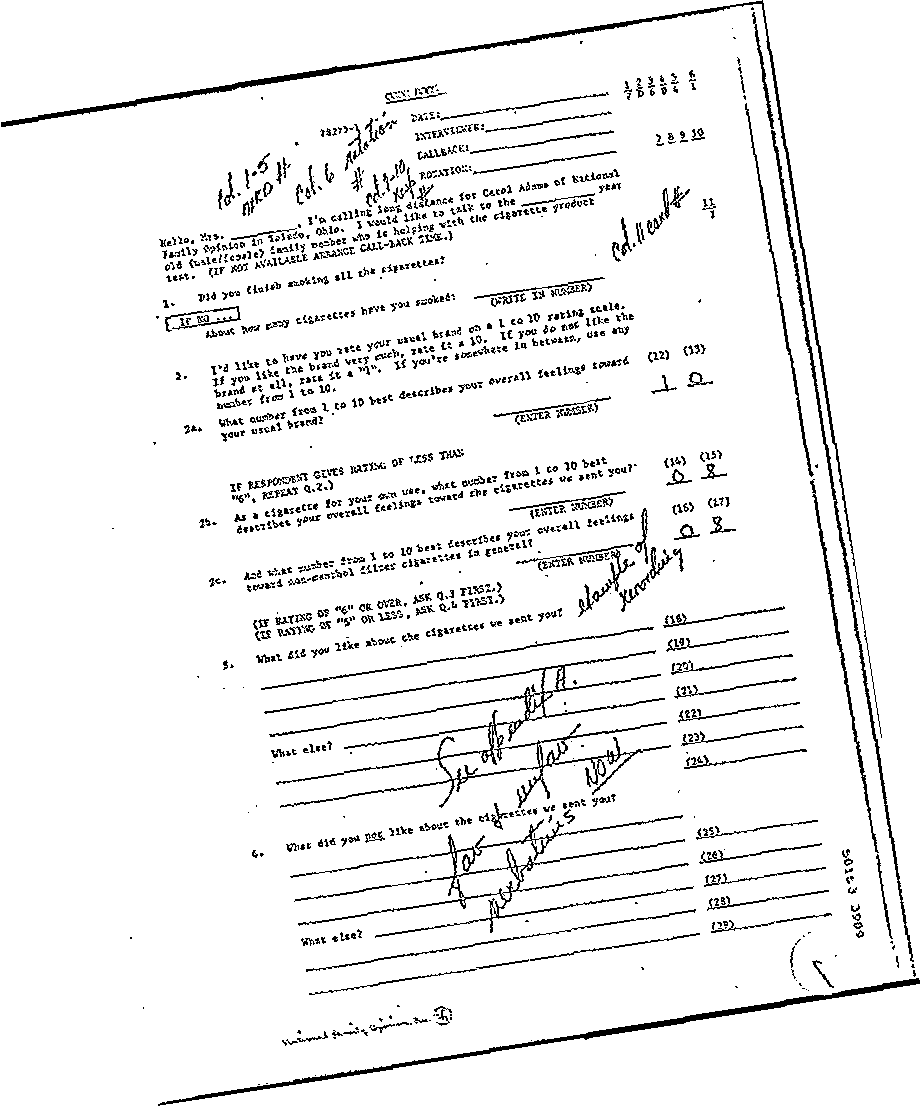 DATE:
1 2 3 4 5 6
INTERVIEWER:
CALLBACK:
7 8 9 10
ROTATION:
Col. 1-5
Col. 6 Rotation
#
Col. 7-10
Col. 11 card #
11
1
Hello, Mrs. , I'm calling long distance for Carol Adams of National
Family Opinion in Toledo, Ohio. I would like to talk to the year
old (male/female) family member who is helping with the cigarette product
test. (IF NOT AVAILABLE ARRANGE CALL-BACK TIME.)
1. Did you finish smoking all the cigarettes?
IF NO ...
About how many cigarettes have you smoked:
(WRITE IN NUMBER)
2. I'd like to have you rate your usual brand on a 1 to 10 rating scale.
If you like the brand very much, rate it a 10. If you do not like the
brand at all, rate it a "1". If you're somewhere in between, use any
number from 1 to 10.
2a. What number from 1 to 10 best describes your overall feelings toward
your usual brand?
(12) (13)
1 0
(ENTER NUMBER)
IF RESPONDENT GIVES RATING OF LESS THAN
"6", REPEAT Q.2.)
2b. As a cigarette for your own use, what number from 1 to 10 best
describes your overall feelings toward the cigarettes we sent you?
(14) (15)
0 8
(ENTER NUMBER)
2c. And what number from 1 to 10 best describes your overall feelings
toward non-menthol filter cigarettes in general?
(16) (17)
0 8
(ENTER NUMBER)
example of
recording
(IF RATING OF "6" OR OVER, ASK Q.3 FIRST.)
(IF RATING OF "5" OR LESS, ASK Q.4 FIRST.)
3. What did you like about the cigarettes we sent you?
(18)
(19)
(20)
(21)
What else?
(22)
(23)
(24)
See appendix A.
fav & unfav
4. What did you not like about the cigarettes we sent you?
(25)
(26)
(27)
(28)
What else?
(29)
50153 3909
National Family Opinion, Inc.